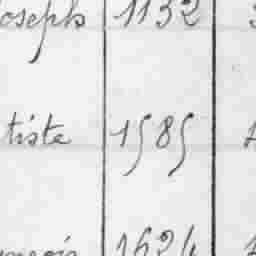 Joseph 1132
tiste 1585
1624